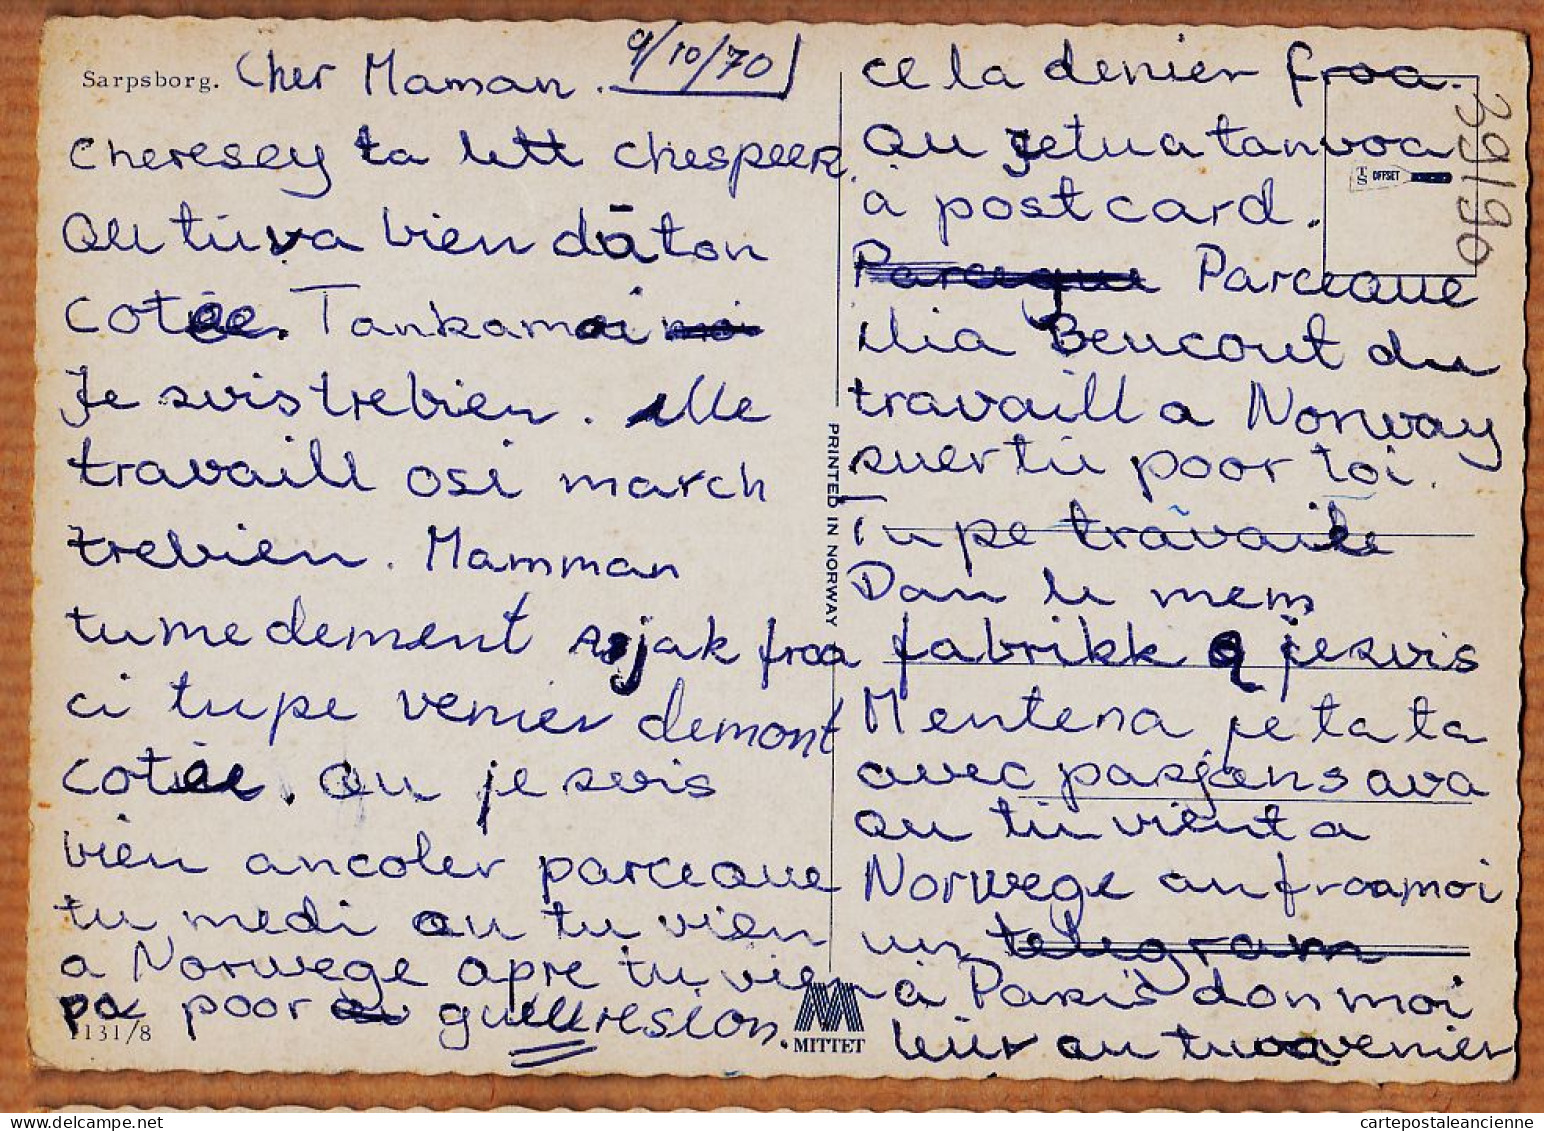 Sarpsborg. Cher Maman. 9/10/70
cheresey ta lett chespeer.
Qu tu va bien dā ton
cotiee. Tankamoi
Je suis trebien. elle
travaill osi march
trebien. Mamman
tumedement sjak froa
ci tupe venier demont
cotiee. Qu je suis
bien ancoler parceque
tu medi qu tu vien
a Norwege apre tu vien
pa poor guelleresion.
1131/8
PRINTED IN NORWAY
MITTET
ce la denier froa.
Qu jetuatanvoa
a post card.
Parceque Parceque
ilia Beucout du
travaill a Norway
suertu poor toi.
Tu pe travaile
Dan le mem
fabrikk q jesuis
Mentena je ta ta
avec pasjans ava
qu tu vient a
Norwege au froamoi
un telegram
a Paris don moi
leur qu tuvavenier
TS OFFSET
39190
cartepostaleancienne.com